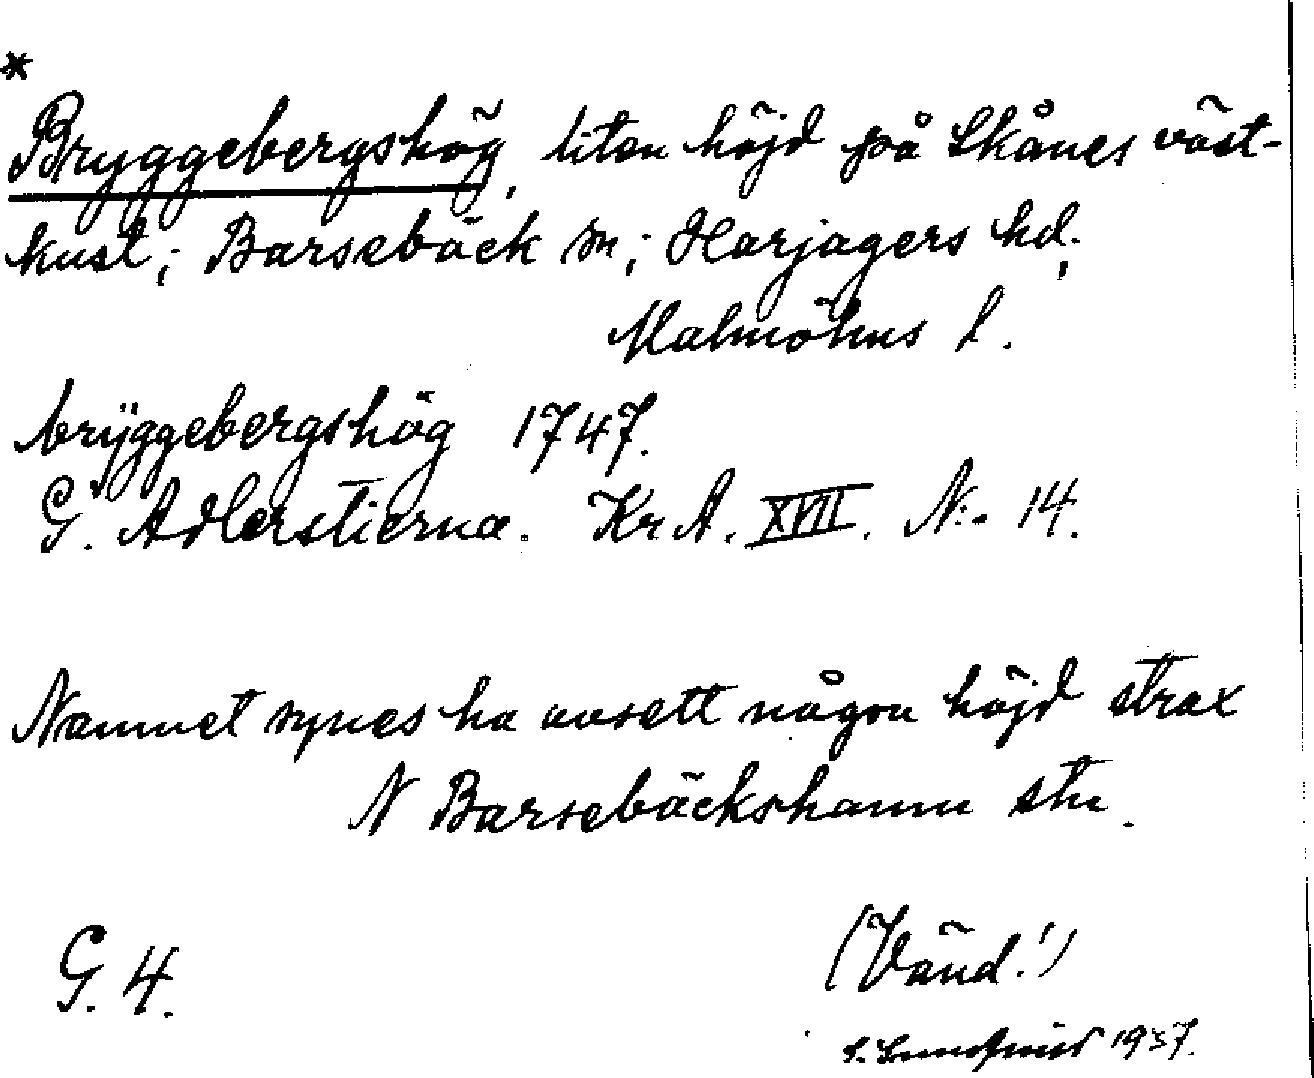 *
Bryggebergshög, liten höjd på Skånes väst-
kust; Barsebäck sn; Harjagers hd;
Malmöhus l.
brÿggebergshög 1747.
G. Adlerstierna. KrA. XVII. N:- 14.
Namnet synes ha avsett någon höjd strax
N Barsebäckshamn stn.
G. 4.
(Vänd!)
S. Lundqvist 1937.